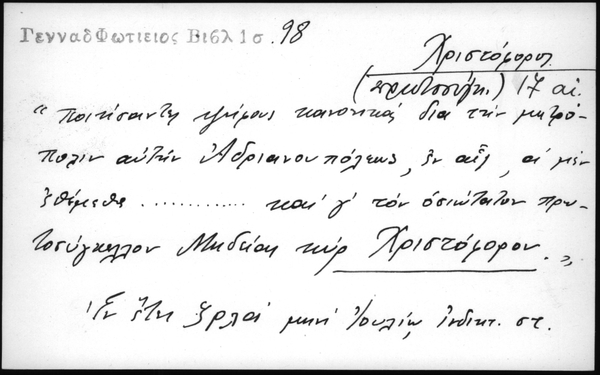 ΓενναδΦωτιειος Βιβλ 1σ. 98
Χριστόφορος
(πρωτοσύγκ.) 17 αἰ.
"ποιήσαντες ψήφους κανονικάς διά τήν μητρό-
πολιν αὐτήν Ἀδριανουπόλεως, ἐν αἷς, αἱ μέν
ἐθέμεθα ............ καί γ' τόν ὁσιώτατον πρω-
τοσύγκελλον Μηδείας κύρ Χριστόφορον."
Ἐν ἔτει ζρλα' μηνί Ἰουλίῳ, ἰνδικτ. στ.